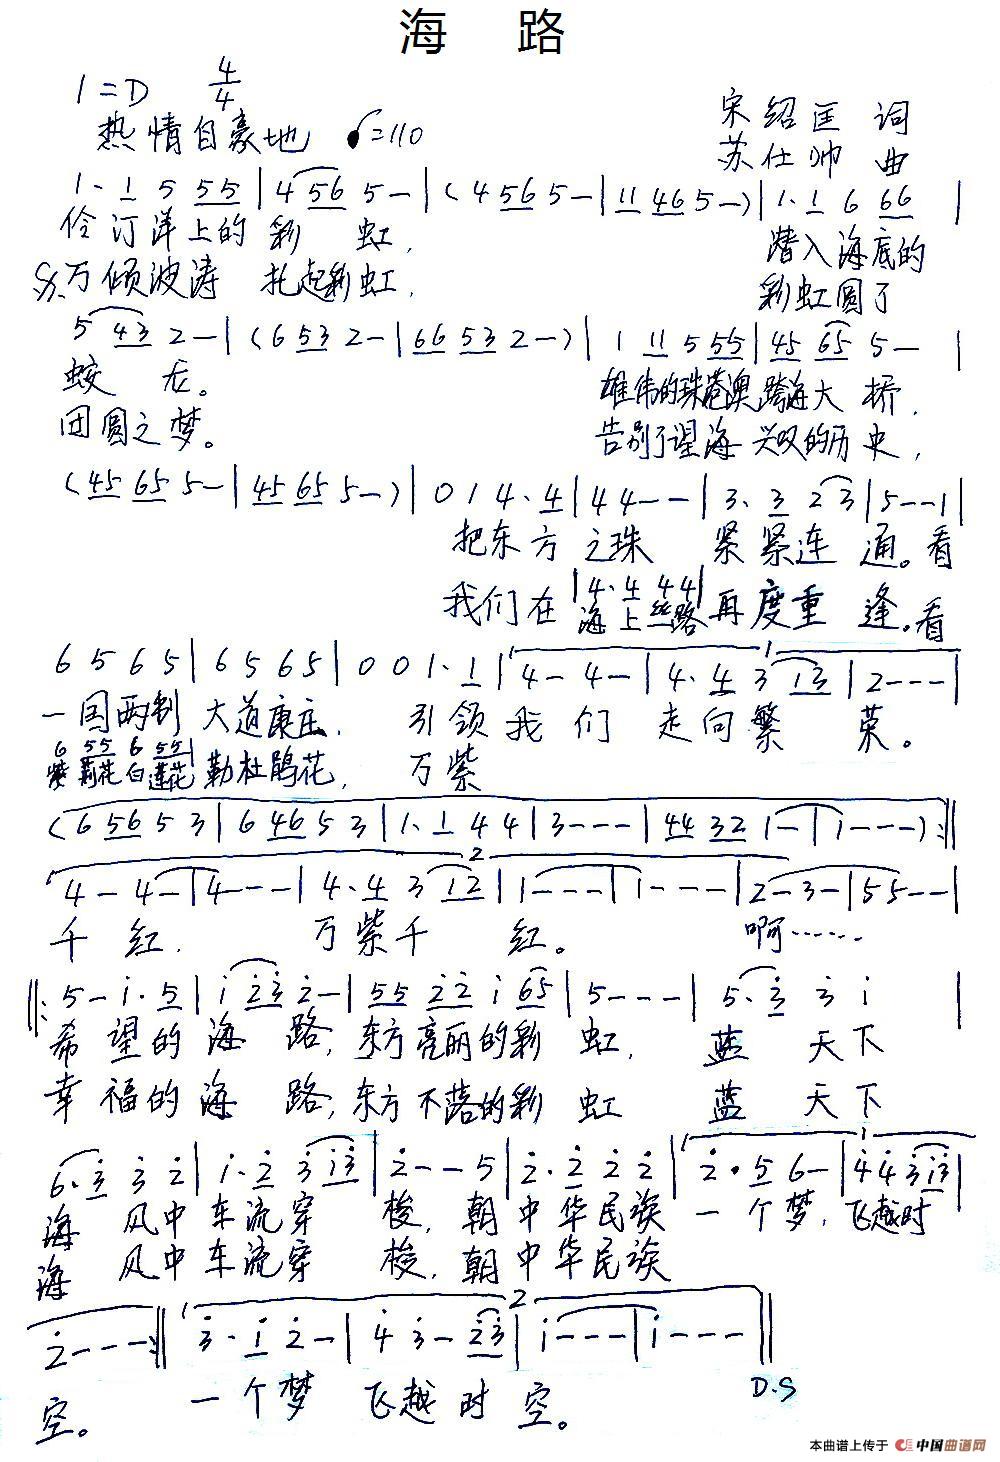 海 路
1=D 4/4
热情自豪地 ♩=110
宋绍匡 词
苏仕帅 曲
1· 1 5 55 | 4 56 5 - | ( 4 56 5 - | 11 46 5 - ) | 1· 1 6 66 |
伶仃洋上的彩 虹, 潜入海底的
万倾波涛 托起彩虹, 彩虹圆了
5 43 2 - | ( 6 53 2 - | 66 53 2 - ) | 1 11 5 55 | 45 65 5 - |
蛟 龙。 雄伟的珠港澳跨海大 桥,
团圆之梦。 告别了望海兴叹的历史,
( 45 65 5 - | 45 65 5 - ) | 0 1 4· 4 | 4 4 - - | 3· 3 2 3 | 5 - - 1 |
把东方之珠 紧紧连 通。看
| 4· 4 4 4 |
我们在海上丝路再度重 逢。看
6 5 6 5 | 6 5 6 5 | 0 0 1· 1 | 4 - 4 - | 4· 4 3 13 | 2 - - - |
一国两制 大道康庄, 引领我们 走向繁 荣。
6 55 6 55 |
紫荆花白莲花勒杜鹃花, 万紫
( 6 56 5 3 | 6 46 5 3 | 1· 1 4 4 | 3 - - - | 44 32 1 - | 1 - - - ) :||
2
4 - 4 - | 4 - - - | 4· 4 3 12 | 1 - - - | 1 - - - | 2 - 3 - | 5 5 - - |
千 红, 万紫千 红。 啊……
||: 5 - i· 5 | i 23 2 - | 55 22 i 65 | 5 - - - | 5· 3 3 i |
希望的海 路, 东方亮丽的彩 虹, 蓝 天下
幸福的海 路, 东方不落的彩 虹 蓝 天下
6· 3 3 2 | i· 2 3 i3 | 2 - - 5 | 2· 2 2 2 | 2· 5 6 - | 4 4 3 i3 |
海 风中车流穿 梭, 朝中华民族一个梦, 飞越时
海 风中车流穿 梭, 朝中华民族
2 - - - :|| 3· i 2 - | 4 3 - 23 | i - - - | i - - - ||
空。 一个梦 飞越时空。
D.S
本曲谱上传于 中国曲谱网